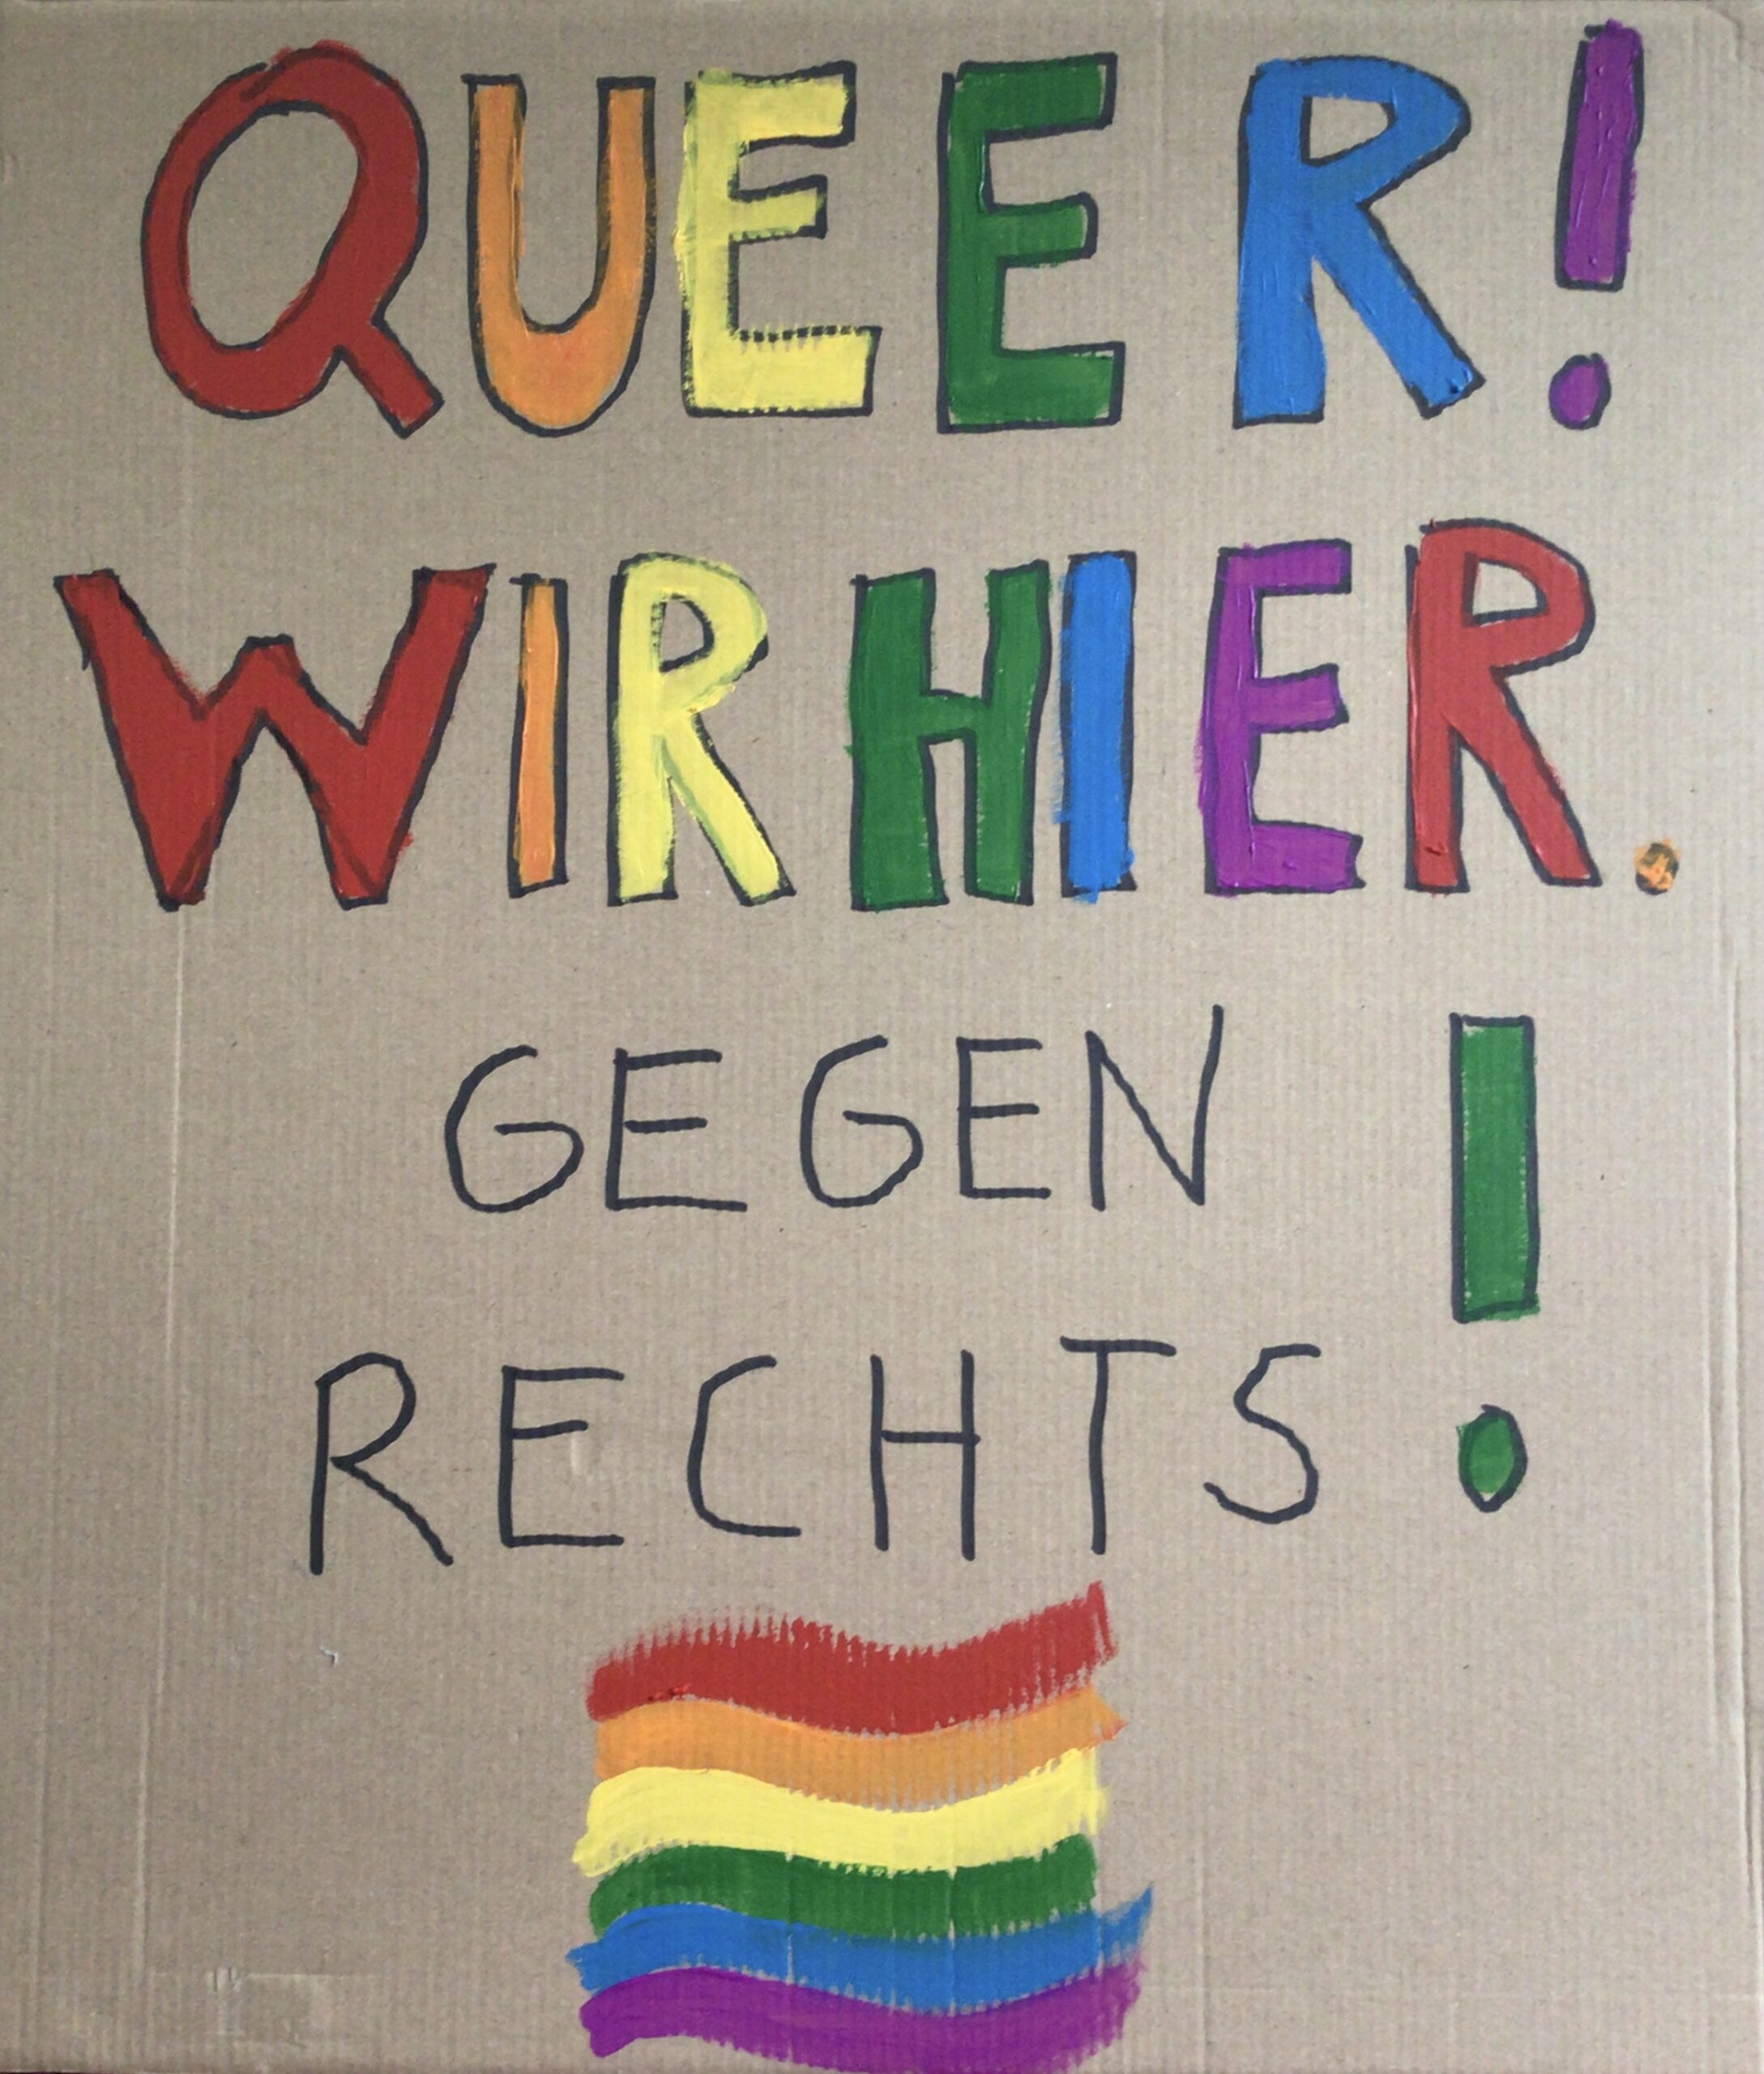 QUEER!
WIR HIER.
GEGEN
RECHTS!